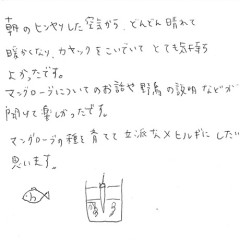 朝のヒンヤリした空気から、どんどん晴れて
暖かくなり、カヤックをこいでいて とても気持ち
よかったです。
マングローブについてのお話や野鳥の説明などが
聞けて楽しかったです。
マングローブの種を育てて立派なメヒルギにしたい
思います。